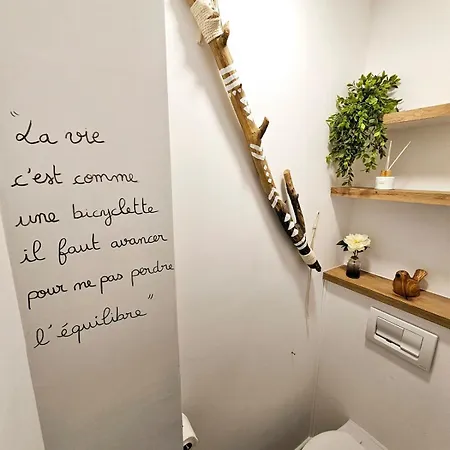 "La vie
c'est comme
une bicyclette
il faut avancer
pour ne pas perdre
l'équilibre"